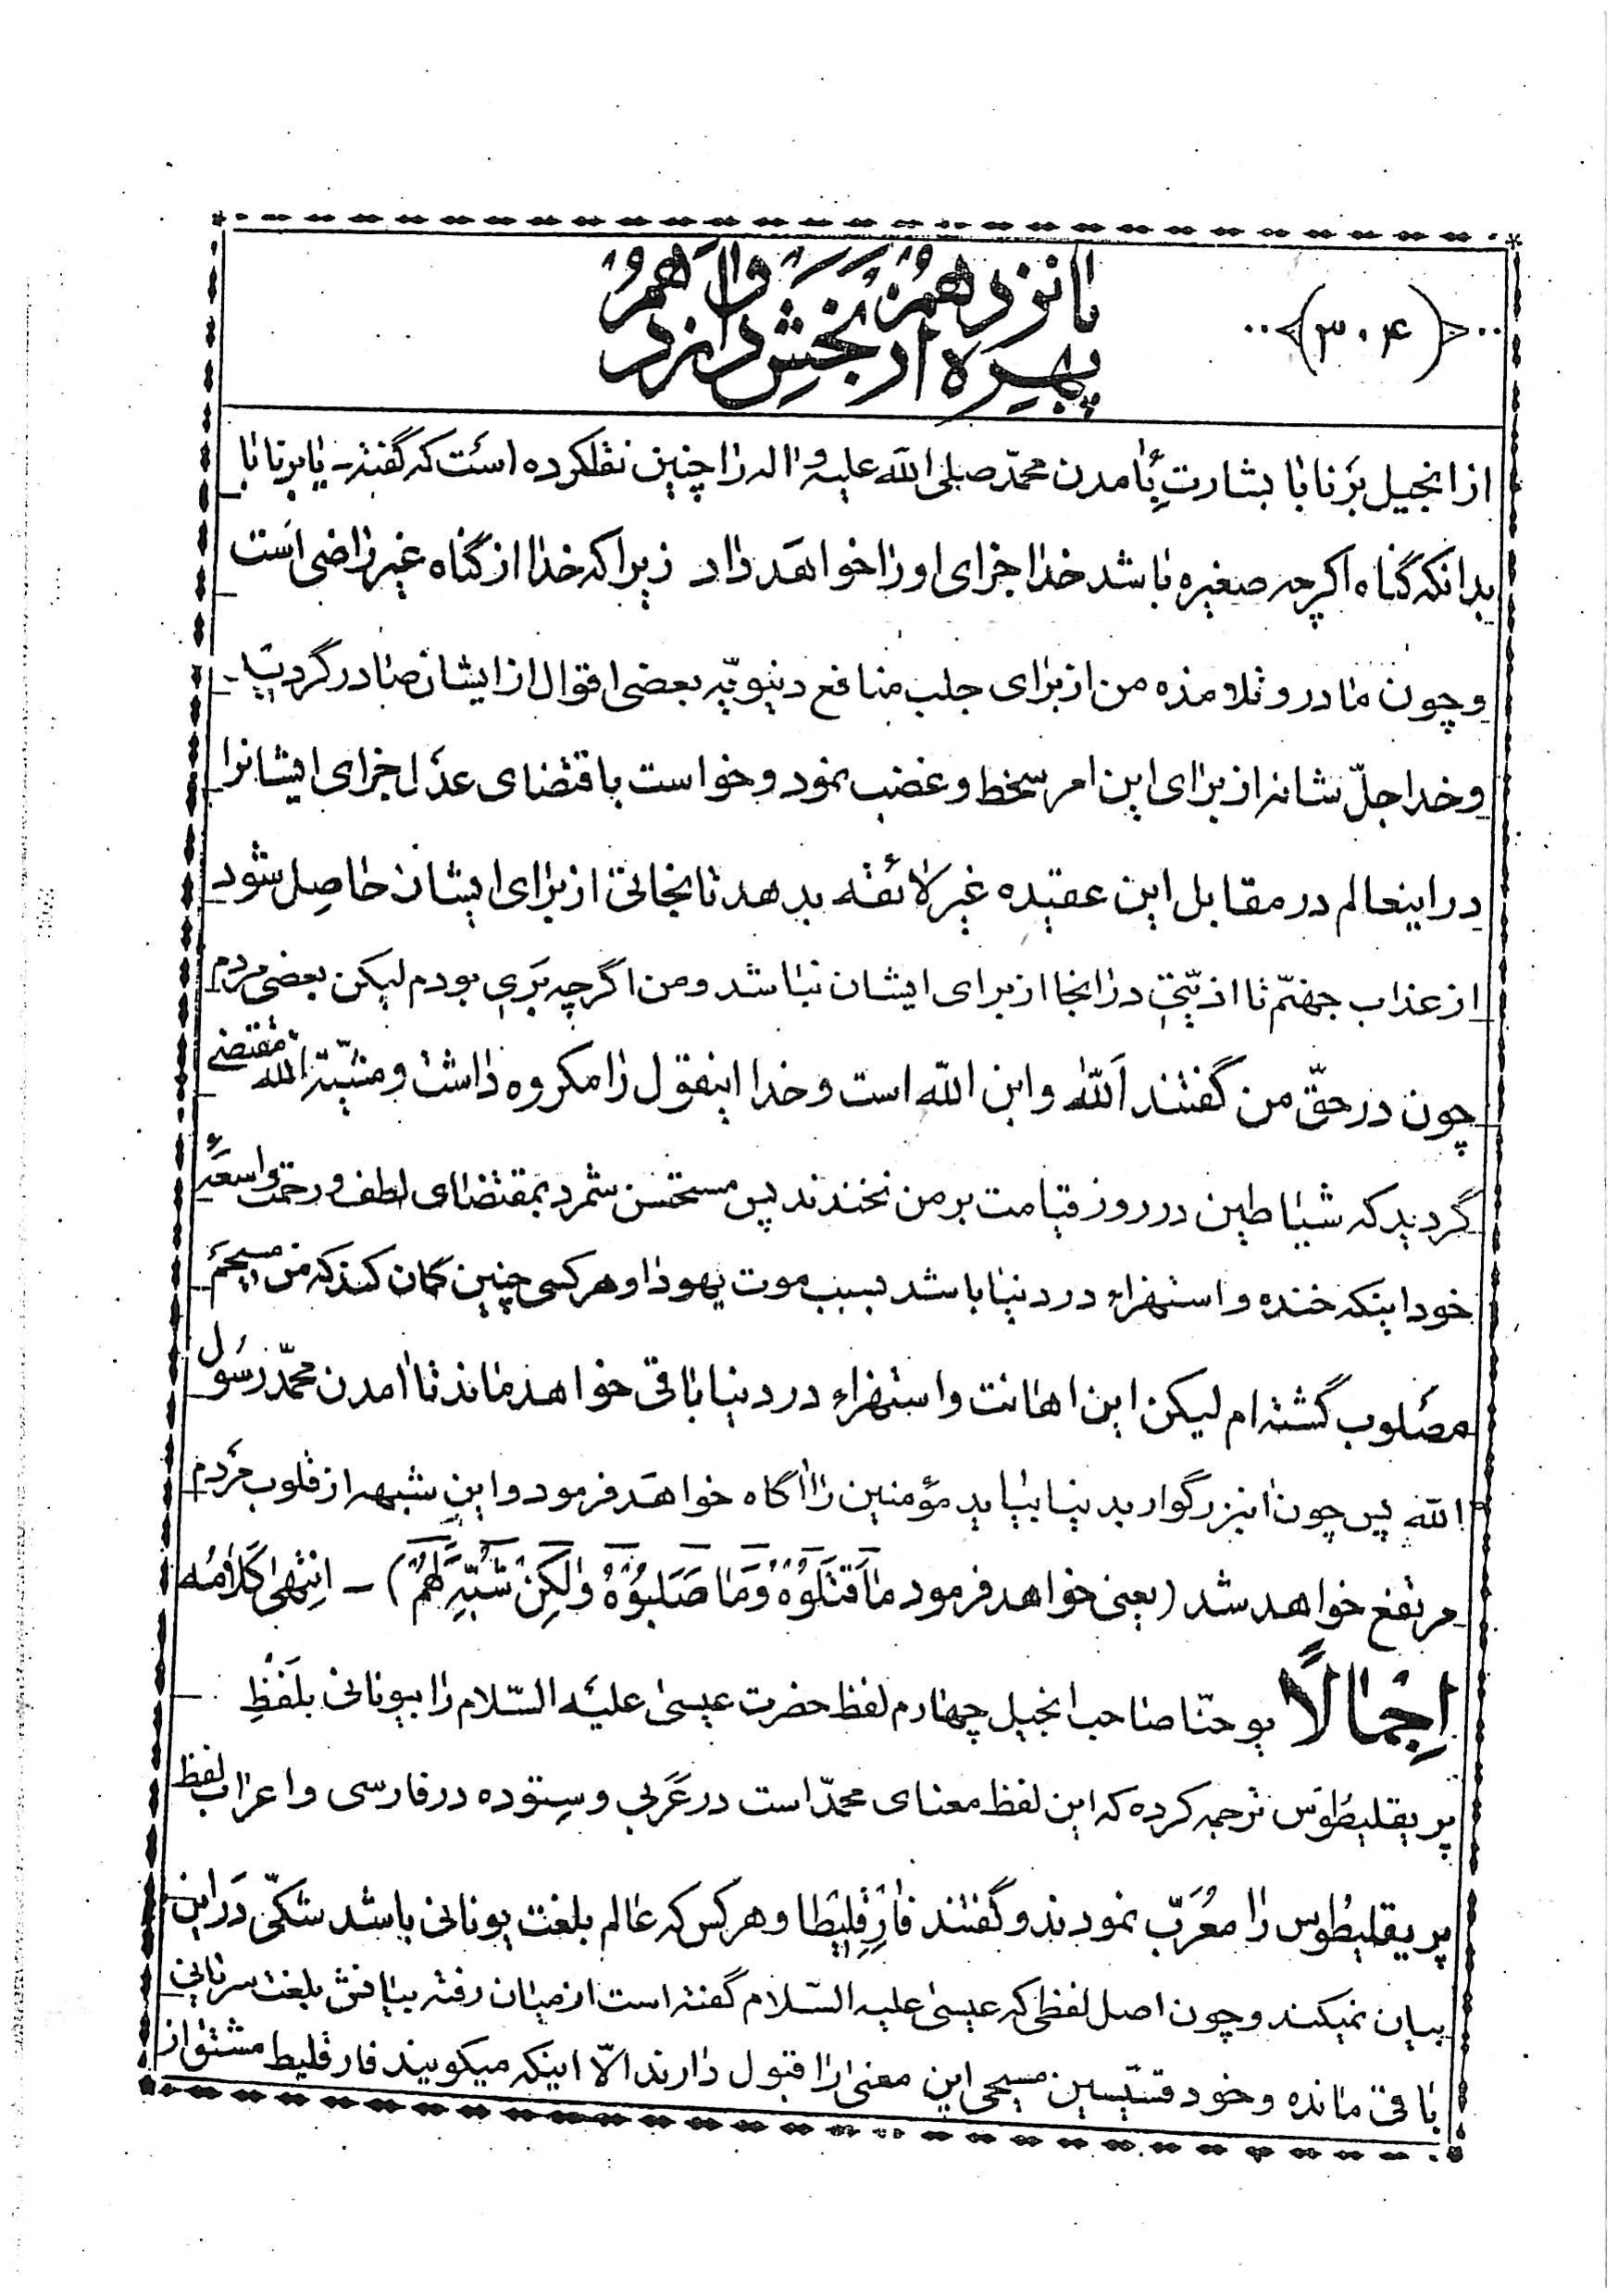 (۳۰۴)
پانزدهمُ و
بهیره از بخش دوازدهمُ
از انجیل بَرنابا بشارتِ بآمدن محمّد صلی الله علیه و اله را چنین نقلکرده است که گفته ـ یا برنابا
بدانکه گناه اگرچه صغیره باشد خدا جزای او را خواهد داد زیرا که خدا از گناه غیر راضی است
و چون مادر و تلامذه من از برای جلب منافع دنیویّه بعضی اقوال از ایشان صادر گردید
و خدا جلّ شانه از برای این امر سخط و غضب نمود و خواست باقتضای عدل جزای ایشانرا
در اینعالم در مقابل این عقیده غیر لائقه بدهد تا نجاتی از برای ایشان حاصِل شود
از عذاب جهنّم تا اذیّتی در انجا از برای ایشان نباشد و من اگرچه بَری بودم لیکن بعضی مردم
چون در حقّ من گفتند اَللّه و ابن اللّه است و خدا اینقول را مکروه داشت و مشیّة اللّه مقتضی
گردید که شیاطین در روز قیامت بر من نخندند پس مستحسن شمرد بمقتضای لطف و رحمت واسعهٔ
خود اینکه خنده و استهزاء در دنیا باشد بسبب موت یهودا و هر کسی چنین گمان کند که من مسیحم
مصلوب گشته‌ام لیکن این اهانت و استهزاء در دنیا باقی خواهد ماند تا آمدن محمّد رسُول
الله پس چون انبزرگوار بدنیا بیاید مؤمنین را آگاه خواهد فرمود و این شبهه از قلوب مَردم
مرتفع خواهد شد (یعنی خواهد فرمود مٰا قَتَلَوُهُ وَمٰا صَلَبُوُهُ وَلٰکِنْ شُبِّهَ لَهُمْ) ـ اِنتهٰی کَلٰامُه
اِجْمٰالاً یوحنّا صاحب انجیل چهارم لفظ حضرت عیسیٰ علیه السّلام را بیونانی بلَفْظِ
پریقلیطُوس ترجمه کرده که این لفظ معنای محمّد است در عَرَبی و سِتوده در فارسی و اعراب لفظ
پریقلیطُوس را مُعَرَّب نمودند و گفتند فٰارِقْلیطٰا و هر کس که عالم بلغت یونانی باشد شکّی در این
بیان نمیکند و چون اصل لفظی که عیسیٰ علیه السّلام گفته است از میان رفته بیافتش بلغت سریانی
باقی مانده و خود قسّیسین مسیحی این معنی را قبول دارند الّا اینکه میگویند فارقلیط مشتق از